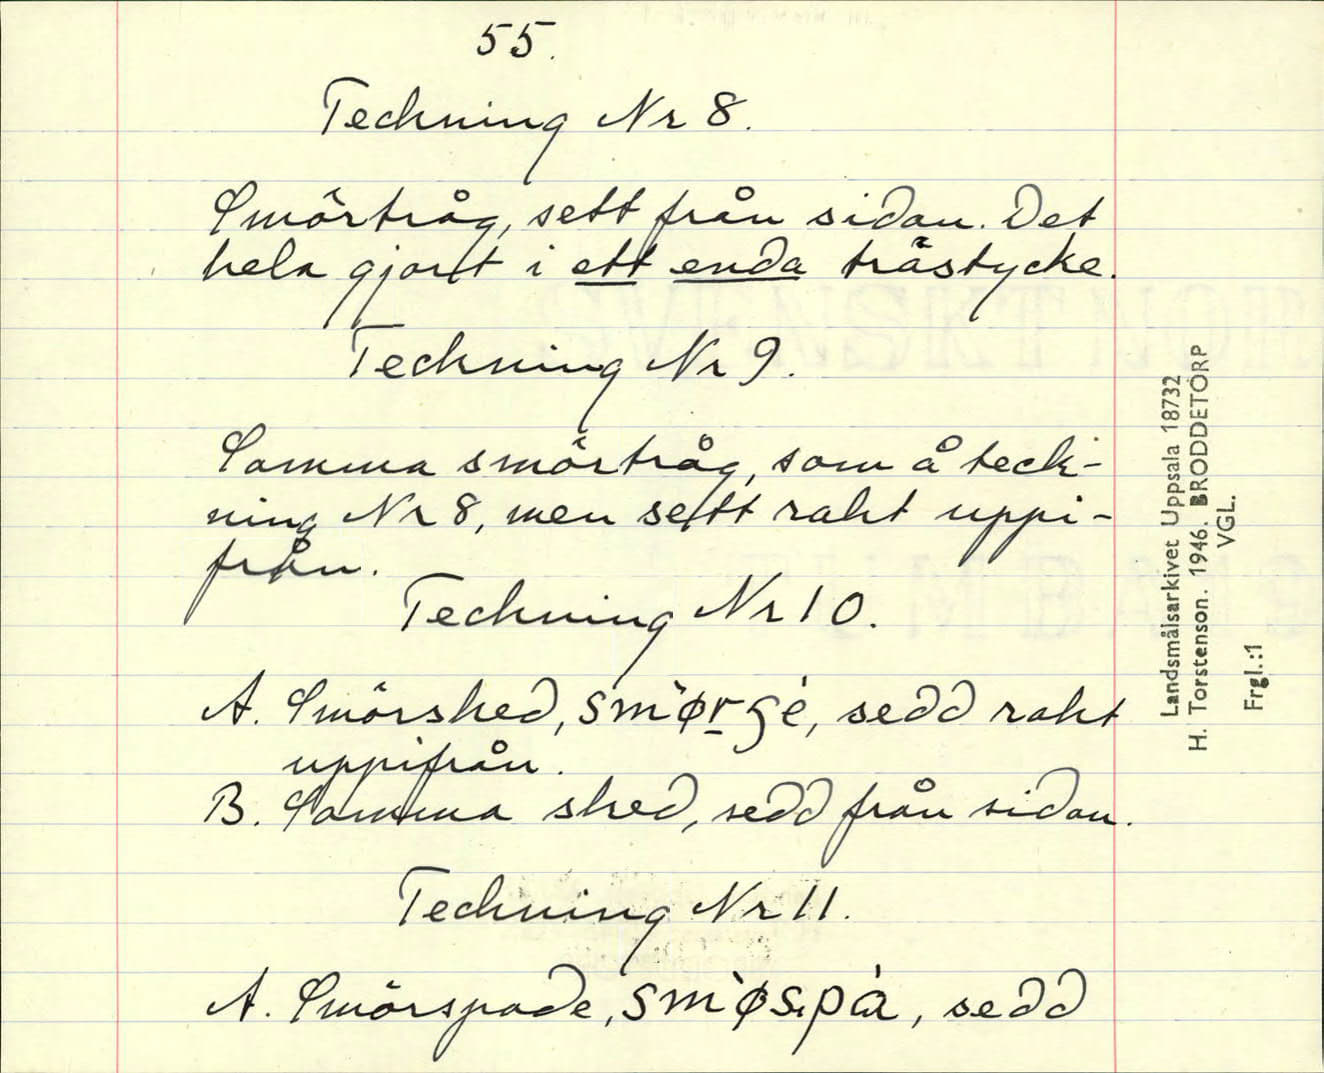 55.
Teckning Nr 8.
Smörtråg, sett från sidan. Det
hela gjort i ett enda trästycke.
Teckning Nr 9.
Samma smörtråg, som å teck-
ning Nr 8, men sett rakt uppi-
från.
Teckning Nr 10.
A. Smörsked, sedd rakt
uppifrån.
B. Samma sked, sedd från sidan.
Teckning Nr 11.
A. Smörspade, sedd
Landsmålsarkivet Uppsala 18732
H. Torstenson. 1946. BRODDETORP
VGL.
Frgl.:1